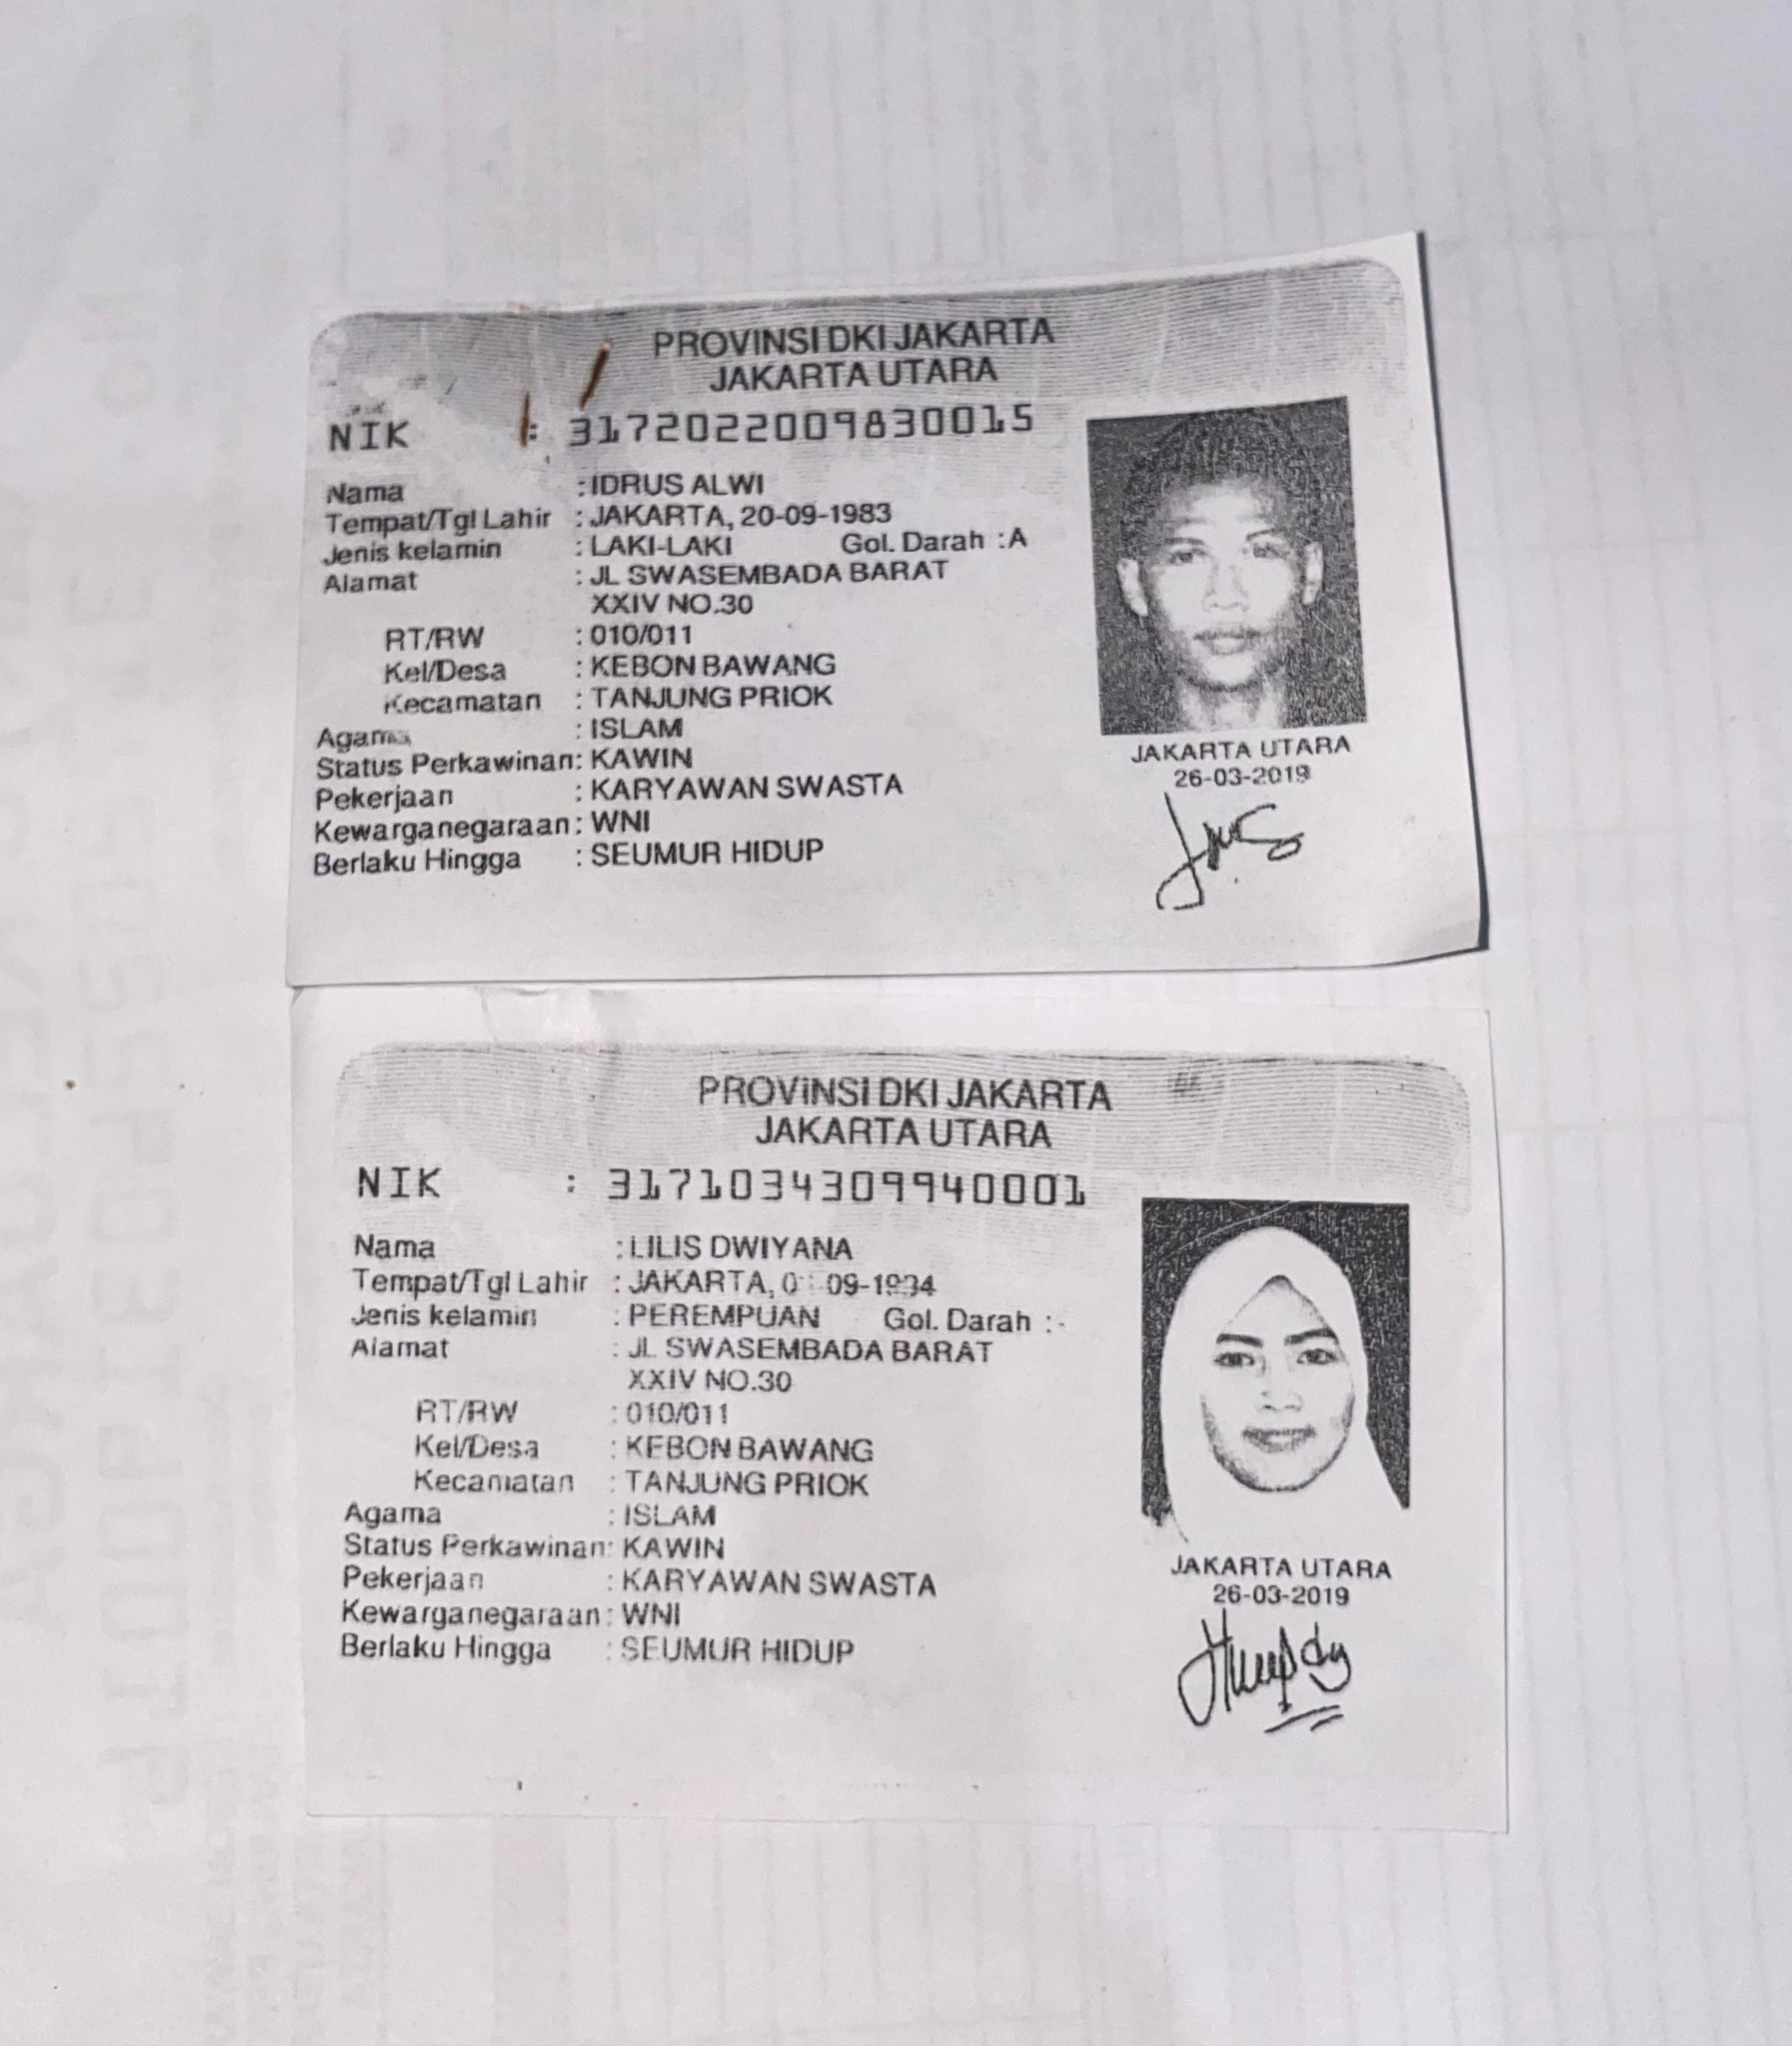 PROVINSI DKI JAKARTA
JAKARTA UTARA
NIK : 3172022009830015
Nama : IDRUS ALWI
Tempat/Tgl Lahir : JAKARTA, 20-09-1983
Jenis kelamin : LAKI-LAKI Gol. Darah : A
Alamat : JL SWASEMBADA BARAT
XXIV NO.30
RT/RW : 010/011
Kel/Desa : KEBON BAWANG
Kecamatan : TANJUNG PRIOK
Agama : ISLAM
Status Perkawinan : KAWIN
Pekerjaan : KARYAWAN SWASTA
Kewarganegaraan : WNI
Berlaku Hingga : SEUMUR HIDUP
JAKARTA UTARA
26-03-2019
PROVINSI DKI JAKARTA
JAKARTA UTARA
NIK : 3171034309940001
Nama : LILIS DWIYANA
Tempat/Tgl Lahir : JAKARTA,
Jenis kelamin : PEREMPUAN Gol. Darah : -
Alamat : JL SWASEMBADA BARAT
XXIV NO.30
RT/RW : 010/011
Kel/Desa : KEBON BAWANG
Kecamatan : TANJUNG PRIOK
Agama : ISLAM
Status Perkawinan : KAWIN
Pekerjaan : KARYAWAN SWASTA
Kewarganegaraan : WNI
Berlaku Hingga : SEUMUR HIDUP
JAKARTA UTARA
26-03-2019